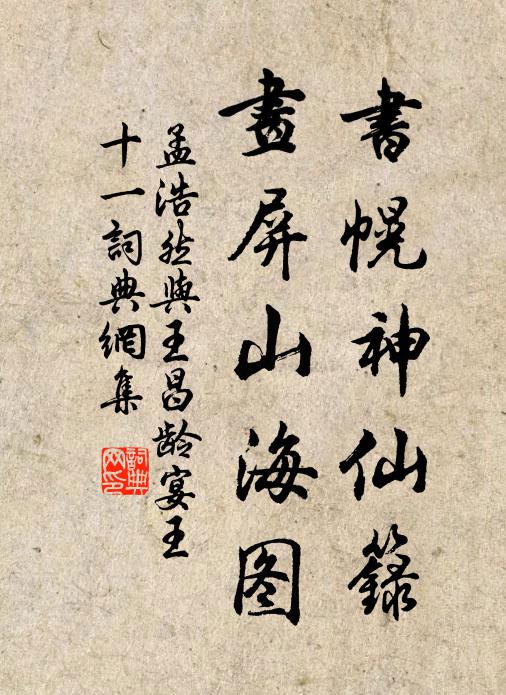 書幌神仙籙
畫屏山海图
孟浩然與王昌龄宴王
十一詞典網集
詞典
网印